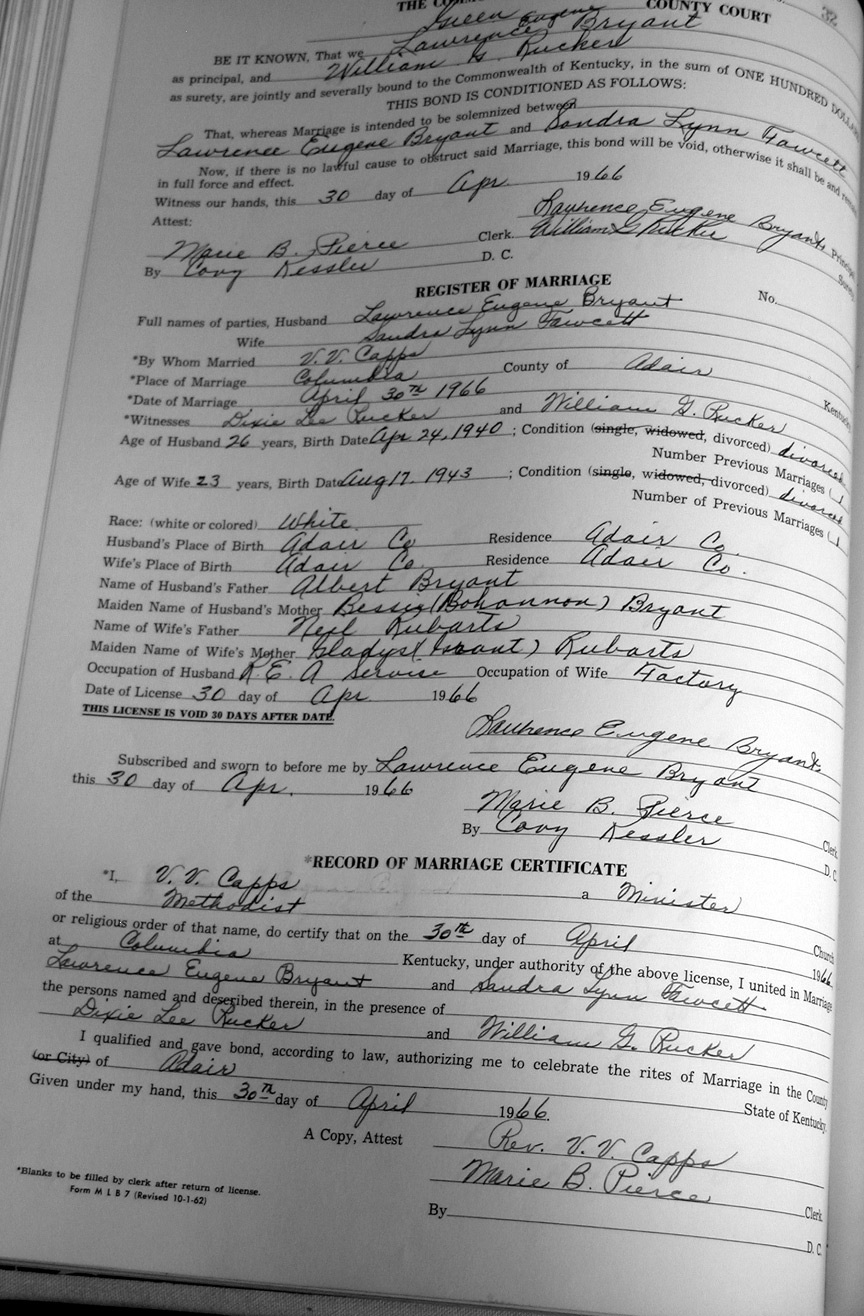 THE COUNTY COURT
32
Green
BE IT KNOWN, That we Lawrence Eugene Bryant
as principal, and William G. Rucker
as surety, are jointly and severally bound to the Commonwealth of Kentucky, in the sum of ONE HUNDRED
THIS BOND IS CONDITIONED AS FOLLOWS:
That, whereas Marriage is intended to be solemnized between
Lawrence Eugene Bryant and Sandra Lynn Fawcett
Now, if there is no lawful cause to obstruct said Marriage, this bond will be void, otherwise it shall be and
in full force and effect.
Witness our hands, this 30 day of Apr. 1966
Attest: Lawrence Eugene Bryant
Marie B. Pierce Clerk. William G Rucker
By Covy Kessler D. C.
REGISTER OF MARRIAGE
No.
Full names of parties, Husband Lawrence Eugene Bryant
Wife Sandra Lynn Fawcett
*By Whom Married V. V. Capps
*Place of Marriage Columbia County of Adair
*Date of Marriage April 30th 1966
*Witnesses Dixie Lee Rucker and William G. Rucker
Age of Husband 26 years, Birth Date Apr 24, 1940 ; Condition (single, widowed, divorced) divorced
Number Previous Marriages (1
Age of Wife 23 years, Birth Date Aug 17, 1943 ; Condition (single, widowed, divorced) divorced
Number of Previous Marriages (1
Race: (white or colored) White
Husband's Place of Birth Adair Co Residence Adair Co.
Wife's Place of Birth Adair Co. Residence Adair Co.
Name of Husband's Father Albert Bryant
Maiden Name of Husband's Mother Bessie (Bohannon) Bryant
Name of Wife's Father Neil Rubarts
Maiden Name of Wife's Mother Gladys ( ) Rubarts
Occupation of Husband R. E. A Service Occupation of Wife Factory
Date of License 30 day of Apr 1966
THIS LICENSE IS VOID 30 DAYS AFTER DATE.
Lawrence Eugene Bryant
Subscribed and sworn to before me by Lawrence Eugene Bryant
this 30 day of Apr, 1966
Marie B. Pierce Clerk
By Covy Kessler D. C.
*RECORD OF MARRIAGE CERTIFICATE
*I, V. V. Capps a Minister
of the Methodist Church
or religious order of that name, do certify that on the 30th day of April 1966
at Columbia Kentucky, under authority of the above license, I united in Marriage
Lawrence Eugene Bryant and Sandra Lynn Fawcett
the persons named and described therein, in the presence of
Dixie Lee Rucker and William G. Rucker
I qualified and gave bond, according to law, authorizing me to celebrate the rites of Marriage in the County
(or City) of Adair State of Kentucky.
Given under my hand, this 30th day of April 1966.
A Copy, Attest Rev. V. V. Capps
Marie B. Pierce Clerk
By D. C.
*Blanks to be filled by clerk after return of license.
Form M L B 7 (Revised 10-1-62)